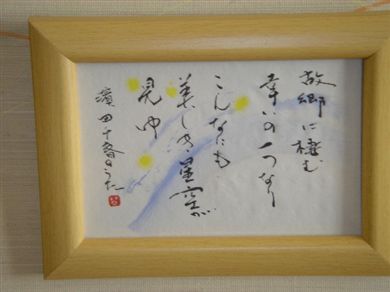 故郷に棲む
幸いの一つなり
こんなにも
美しき星空が
見ゆ
濱田十香のうた